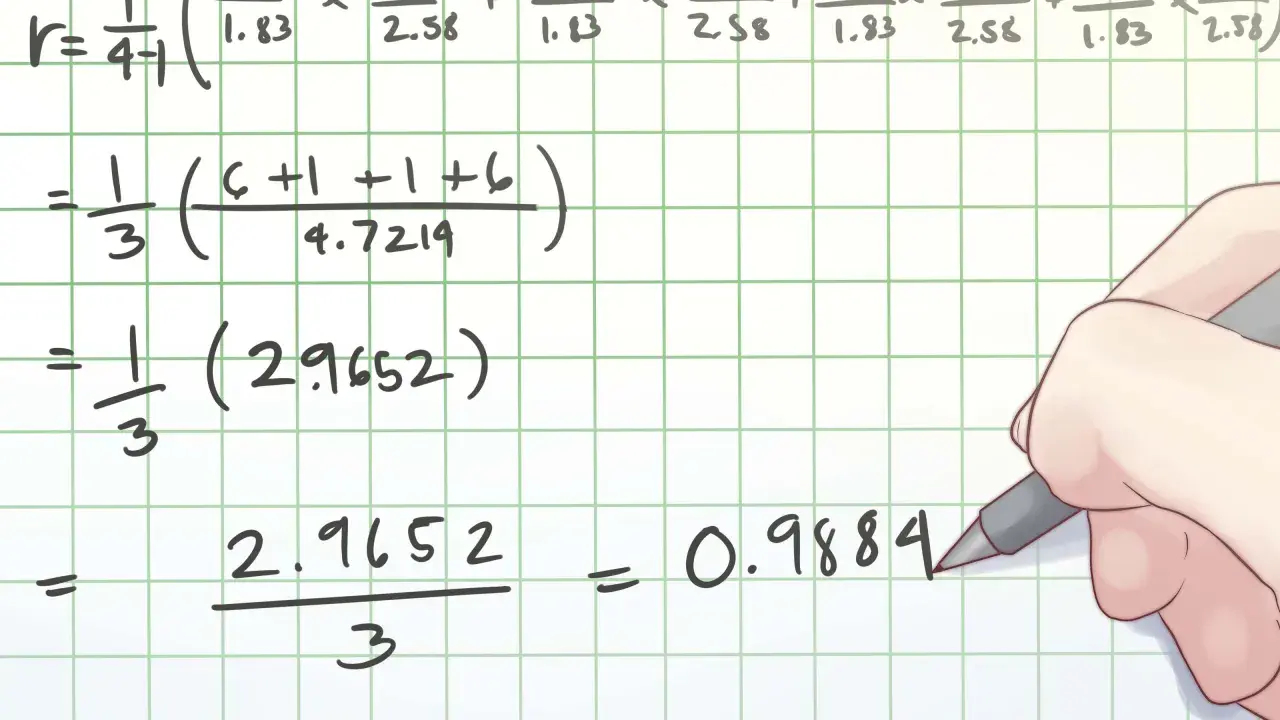 r = 1/4-1 ( /1.83 × /2.58 + /1.83 × /2.58 + /1.83 × /2.58 + /1.83 × /2.58 )
= 1/3 ( 6 +1 +1 +6 / 4.7214 )
= 1/3 ( 2.9652 )
= 2.9652/3 = 0.9884